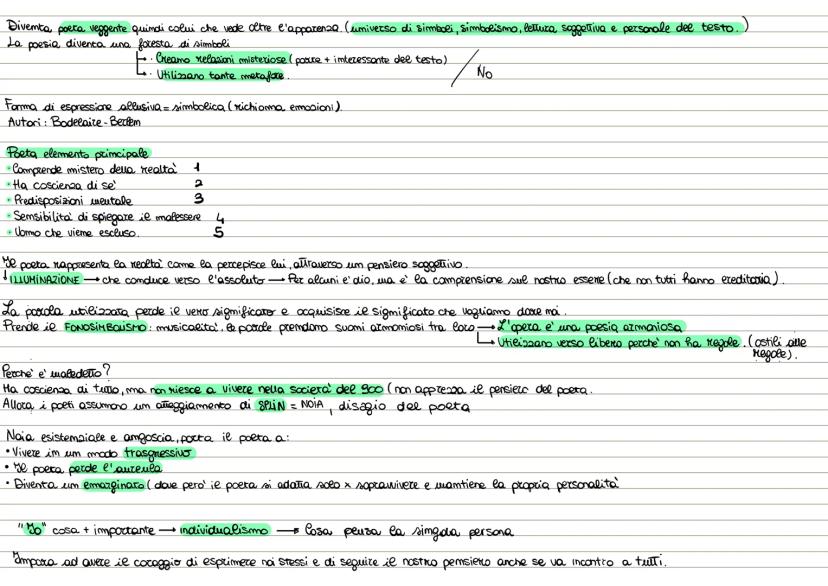 Diventa poeta veggente quindi colui che vede oltre l'apparenza. (universo di simboli, simbolismo, lettura soggettiva e personale del testo.)
La poesia diventa una foresta di simboli
Creano relazioni misteriose (parte + interessante del testo)
Utilizzano tante metafore.
No
Forma di espressione allusiva = simbolica (richiama emozioni).
Autori: Bodelaire-
Poeta elemento principale
• Comprende mistero della realtà 1
• Ha coscienza di se' 2
• Predisposizioni mentale 3
• Sensibilità di spiegare il malessere 4
• Uomo che viene escluso. 5
Il poeta rappresenta la realtà come la percepisce lui, attraverso un pensiero soggettivo.
↓ ILLUMINAZIONE → che conduce verso l'assoluto → Per alcuni e' dio, ma e' la comprensione sul nostro essere (che non tutti hanno ereditaria).
La parola utilizzata perde il vero significato e acquisisce il significato che vogliamo dare noi.
Prende il FONOSIMBOLISMO: musicalità, le parole prendono suoni armoniosi tra loro → L'opera e' una poesia armoniosa
Utilizzano verso libero perche' non ha regole. (ostili alle
regole).
Perche' e' maledetto?
Ha coscienza di tutto, ma non riesce a vivere nella societa' del 900 (non apprezza il pensiero del poeta.
Allora i poeti assumono un atteggiamento di SPLIN = NOIA, disagio del poeta
Noia esistenziale e angoscia, porta il poeta a:
• Vivere in un modo trasgressivo
• Il poeta perde l'aureula
• Diventa un emarginato (dove pero' il poeta si adatta solo x sopravvivere e mantiene la propria personalità
"Io" cosa + importante → individualismo → Cosa pensa la singola persona
Impara ad avere il coraggio di esprimere noi stessi e di seguire il nostro pensiero anche se va incontro a tutti.